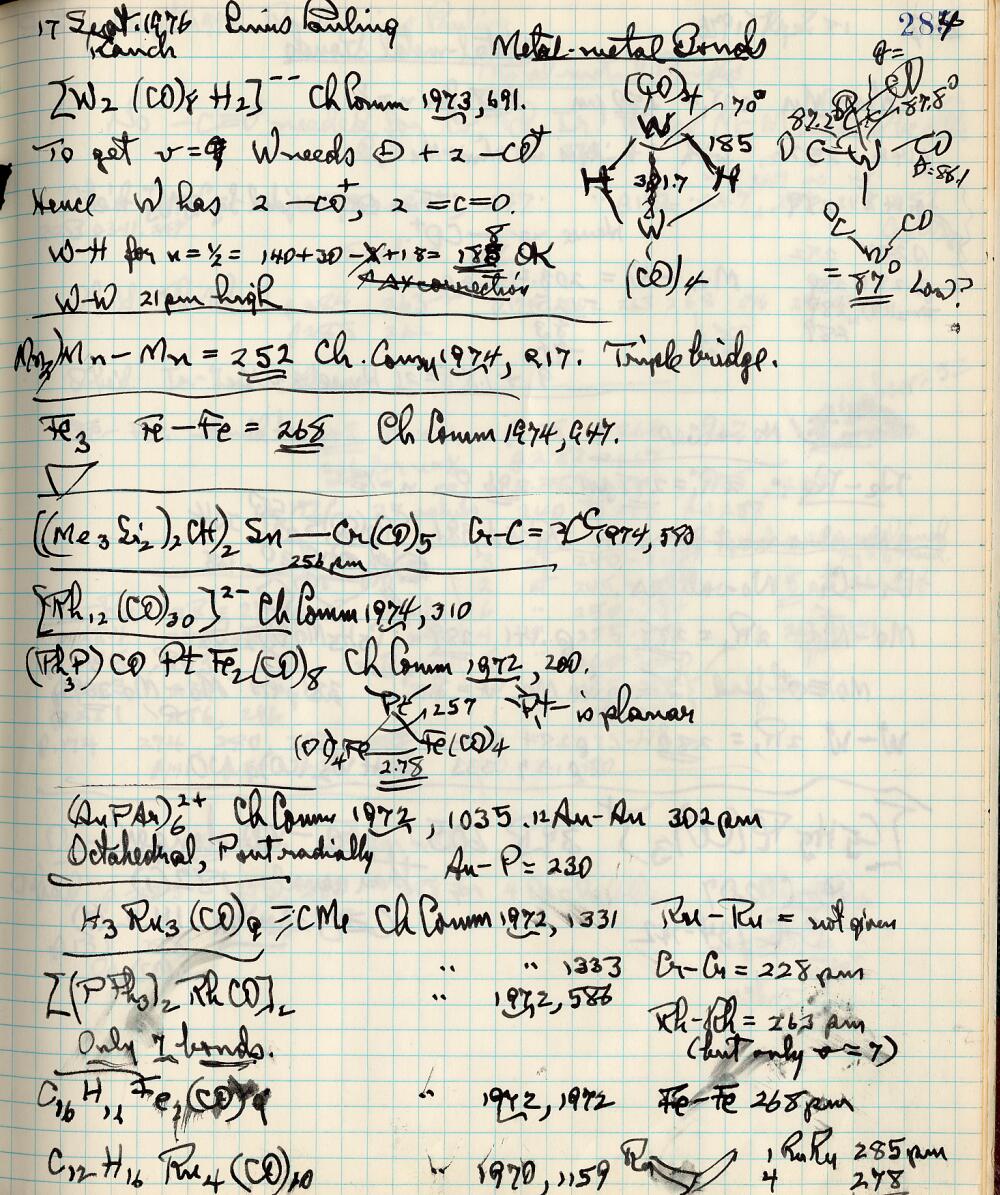 17 Sept. 1976 Linus Pauling 284
Ranch Metal-metal Bonds
[W2 (CO)8 H2]-- Ch Comm 1973, 691.
To get v=9 W needs ⊖ + 2 -CO+
Hence W has 2 -CO+, 2 =C=O.
W-H for n=½ = 140+30 +18= 188 OK
W-W 21 pm high
(CO)4
W
70°
185
H H
W
(CO)4
87.8°
OC W CO
OC CO
W
= 87° Low?
Mn-Mn = 252 Ch. Comm 1974, 217. Triple bridge.
Fe3 Fe-Fe = 268 Ch Comm 1974, 947.
((Me3Si2)2CH)2 Sn — Cr(CO)5 Cr-C = 1974, 580
256 pm
[Rh12(CO)30]2- Ch Comm 1974, 310
(Ph3P) CO Pt Fe2(CO)8 Ch Comm 1972, 200.
Pt 257 Pt is planar
(CO)4Fe Fe(CO)4
2.78
(AuPAr)6 2+ Ch Comm 1972, 1035. 12 Au-Au 302 pm
Octahedral, P out radially Au-P = 230
H3 Ru3 (CO)9 ≡CMe Ch Comm 1972, 1331 Ru-Ru = not given
" " 1333 Cr-Cr = 228 pm
[(PPh3)2 Rh CO]2 " 1972, 586
Rh-Rh = 263 pm
Only 7 bonds. (but only v=7)
C16 H Fe2(CO)9 " 1972, 1972 Fe-Fe 268 pm
C12 H16 Ru4 (CO)10 " 1970, 1159 Ru 1 RuRu 285 pm
4 278